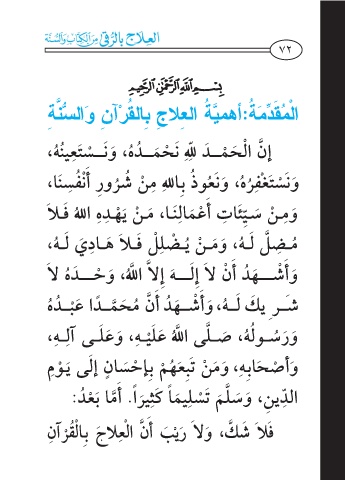 العِلاج بالرُّقى مِنَ الكِتَابِ وَالسُّنَّة
٧٢
بِسْمِ اللَّهِ الرَّحْمَنِ الرَّحِيمِ
الْمُقَدِّمَةُ: أهميَّةُ العِلاجِ بِالقُرْآنِ وَالسُّنَّةِ
إِنَّ الْحَمْدَ للهِ نَحْمَدُهُ، وَنَسْتَعِينُهُ،
وَنَسْتَغْفِرُهُ، وَنَعُوذُ بِاللهِ مِنْ شُرُورِ أَنْفُسِنَا،
وَمِنْ سَيِّئَاتِ أَعْمَالِنَا، مَنْ يَهْدِهِ اللهُ فَلاَ
مُضِلَّ لَهُ، وَمَنْ يُضْلِلْ فَلاَ هَادِيَ لَهُ،
وَأَشْهَدُ أَنْ لاَ إِلَهَ إِلاَّ اللَّهُ، وَحْدَهُ لاَ
شَرِيكَ لَهُ، وَأَشْهَدُ أَنَّ مُحَمَّدًا عَبْدُهُ
وَرَسُولُهُ، صَلَّى اللَّهُ عَلَيْهِ، وَعَلَى آلِهِ،
وَأَصْحَابِهِ، وَمَنْ تَبِعَهُمْ بِإِحْسَانٍ إِلَى يَوْمِ
الدِّينِ، وَسَلَّمَ تَسْلِيمَاً كَثِيرَاً. أَمَّا بَعْدُ:
فَلاَ شَكَّ، وَلاَ رَيْبَ أَنَّ الْعِلاَجَ بِالْقُرْآنِ